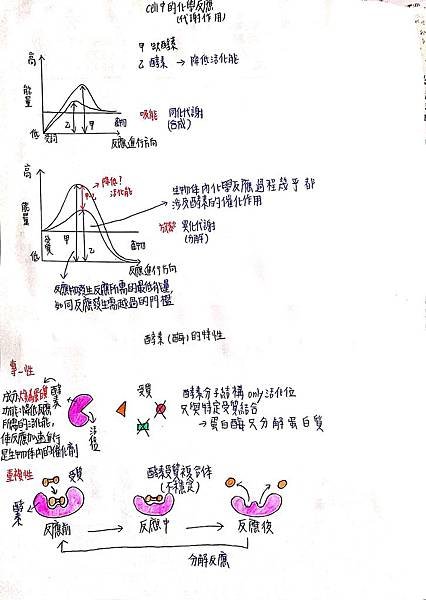 cell中的化學反應
(代謝作用)
甲 缺酵素
乙 酵素 → 降低活化能
高
能量
低
乙
甲
受質
產物
反應進行方向
吸能 同化代謝
(合成)
高
能量
低
降低?
活化能
受質
甲
乙
產物
反應進行方向
生物体內化學反應過程幾乎都
涉及酵素的催化作用
放能 異化代謝
(分解)
反應物發生反應所需的最低能量,
如同反應發生需越過的門檻
酵素(酶)的特性
專一性
成分:
功能:降低反應
所需的活化能,
使反應加速進行
是生物体內的催化劑
酵素
活化位
受質
酵素分子結構only活化位
只與特定受質結合
→蛋白酶只分解蛋白質
重複性
受質
酵素
反應前
酵素受質複合体
(不穩定)
反應中
反應後
分解反應